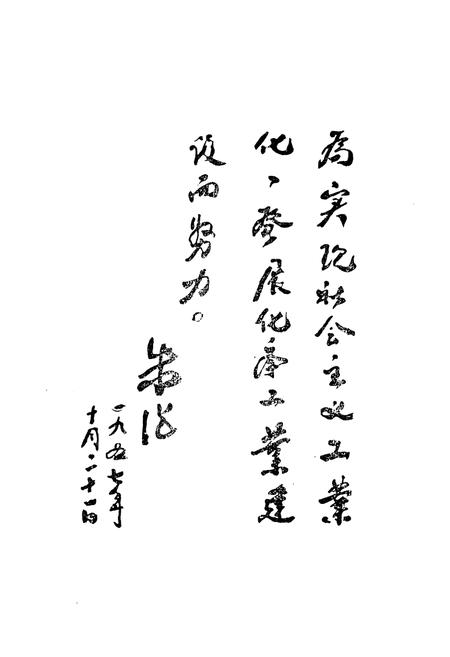 為实现社会主义工業
化、發展化学工業建
设而努力。
朱德
一九五七年
十月二十一日